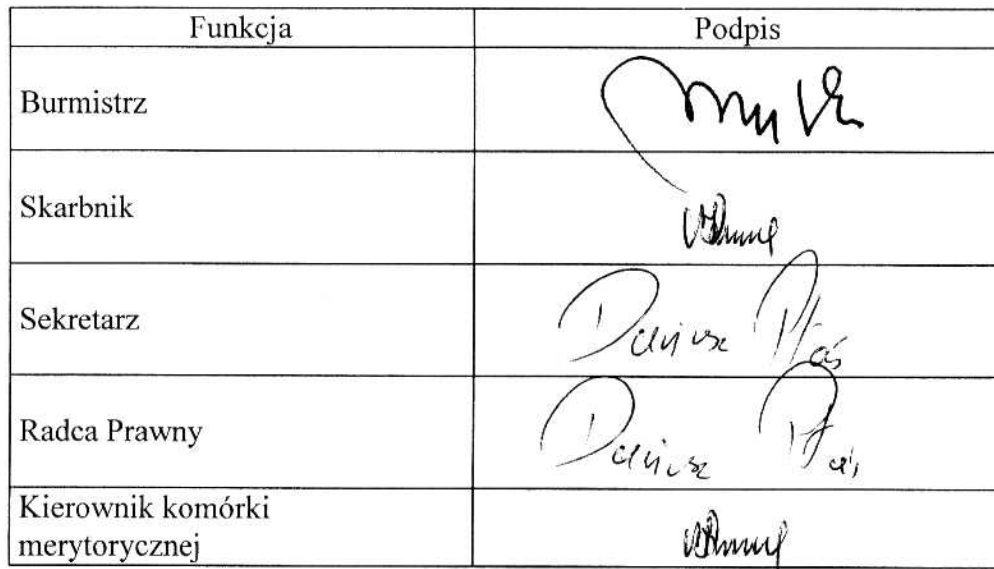 Funkcja Podpis
Burmistrz
Skarbnik
Sekretarz Dariusz Ptaś
Radca Prawny Dariusz Ptaś
Kierownik komórki
merytorycznej